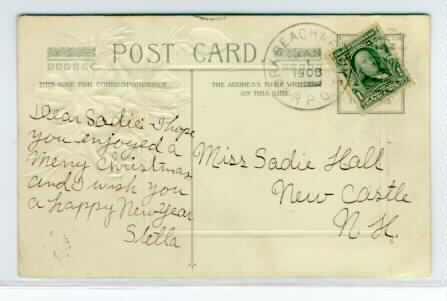 POST CARD
THIS SIDE FOR CORRESPONDENCE.
THE ADDRESS TO BE WRITTEN
ON THIS SIDE.
1908
R.P.O.
Dear Sadie I hope
you enjoyed a
Merry Christmas
and I wish you
a happy New Year
Stella
Miss Sadie Hall
New Castle
N. H.